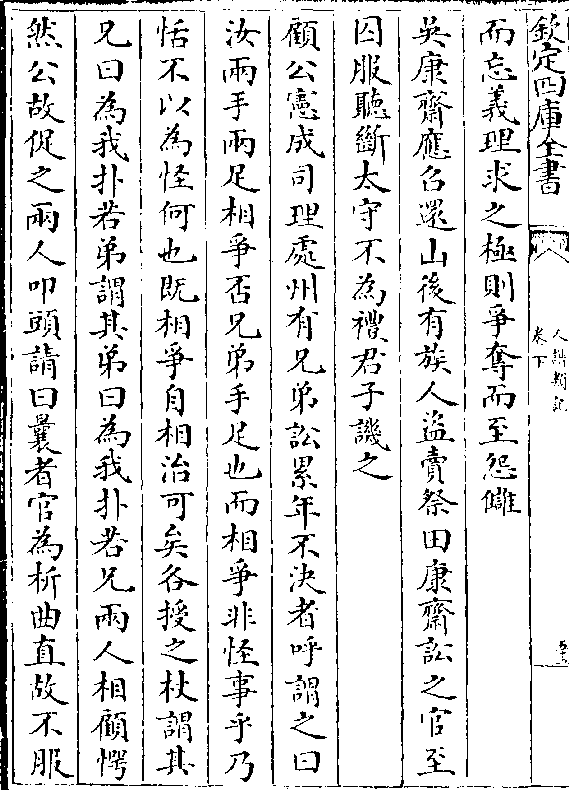 欽定四庫全書
人譜類記
卷下
至
而忘義理求之極則爭奪而至怨讎
吳康齋應召還山後有族人盜賣祭田康齋訟之官至
囚服聽斷太守不為禮君子譏之
顧公憲成司理處州有兄弟訟累年不決者呼謂之曰
汝兩手兩足相爭否兄弟手足也而相爭非怪事乎乃
恬不以為怪何也既相爭自相治可矣各授之杖謂其
兄曰為我扑若弟謂其弟曰為我扑若兄兩人相顧愕
然公故促之兩人叩頭請曰曩者官為析曲直故不服